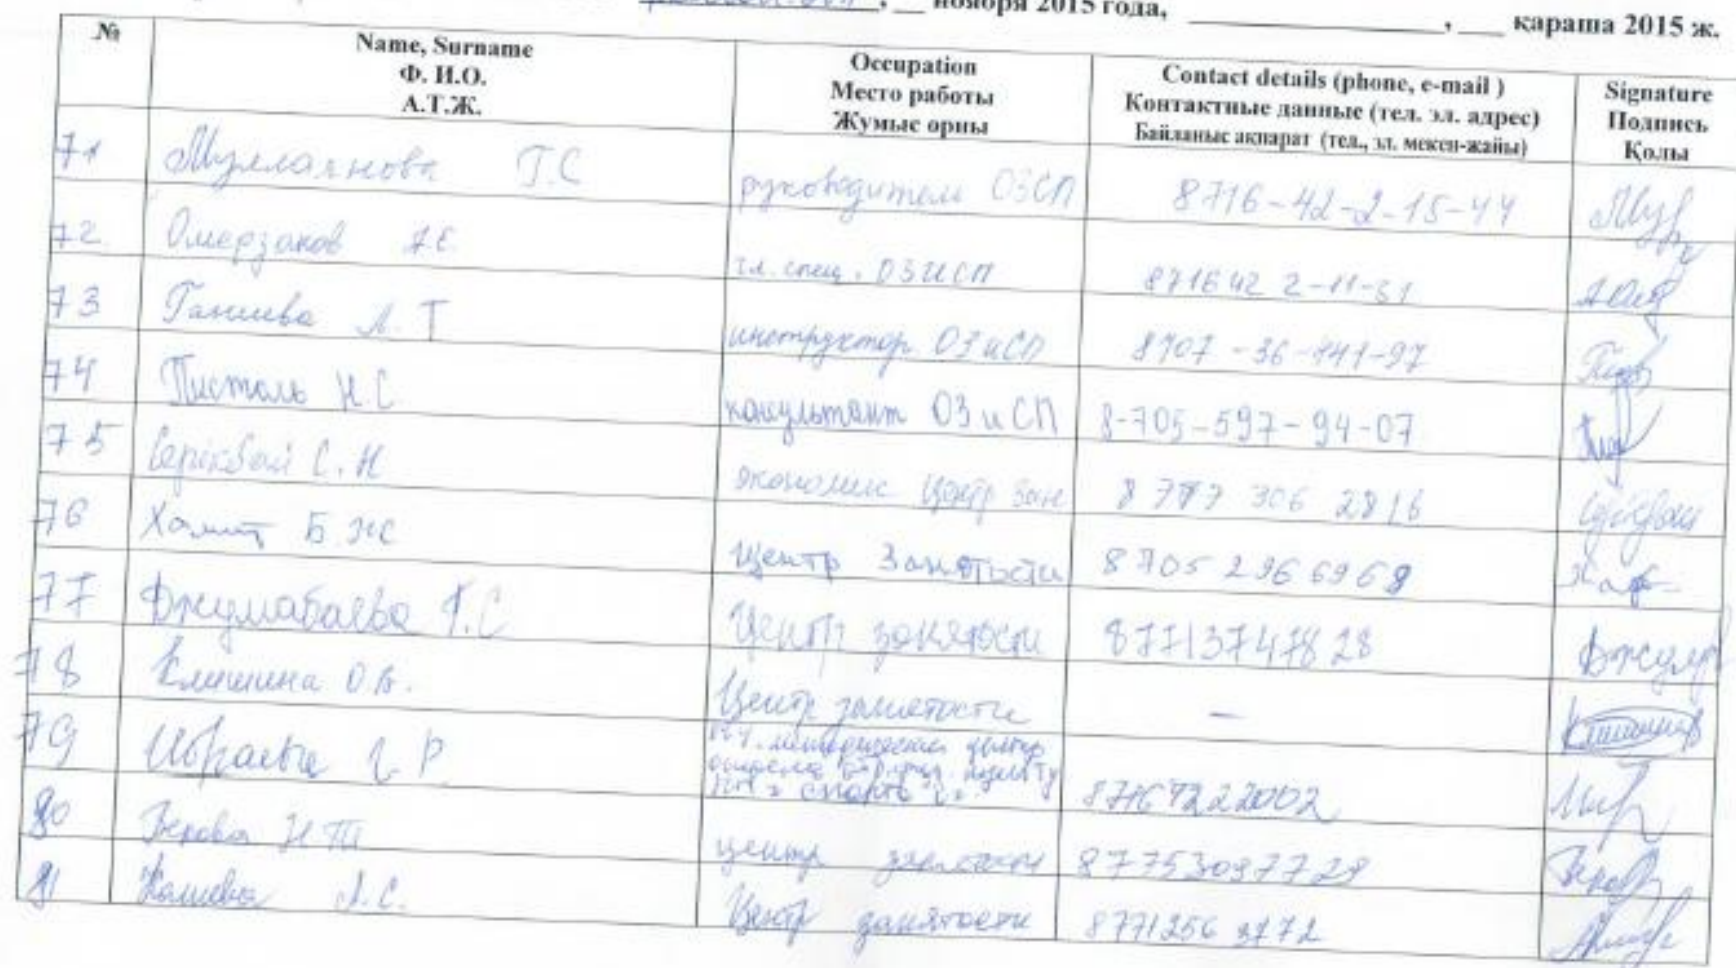 , __ ноября 2015 года, ____________, ___ қараша 2015 ж.
№
Name, Surname
Ф. И.О.
А.Т.Ж.
Occupation
Место работы
Жумыс орны
Contact details (phone, e-mail )
Контактные данные (тел. эл. адрес)
Байланыс акпарат (тел., эл. мекен-жайы)
Signature
Подпись
Қолы
71 Г.С руководитель ОЗСП 8716-42-2-15-44
72 Омерзаков А.Е. гл. спец. ОЗиСП 871642 2-11-51
73 Ганиева Л. Т инструктор ОЗиСП 8707-36-141-97
74 Писталь Н.С консультант ОЗ и СП 8-705-597-94-07
75 Серікбай С. Н экономис Центр Зан 8 777 306 2816
76 Хамит Б Ж Центр Занятости 8 705 296 6968
77 Джумабаева Г.С Центр занятости 87713747828
78 Клишина О.В. Центр занятости —
79 Ибраева Г. Р. 87167222002
80 центр занятости 87753097729
81 Калиева А.С. Центр занятости 8771256 3172